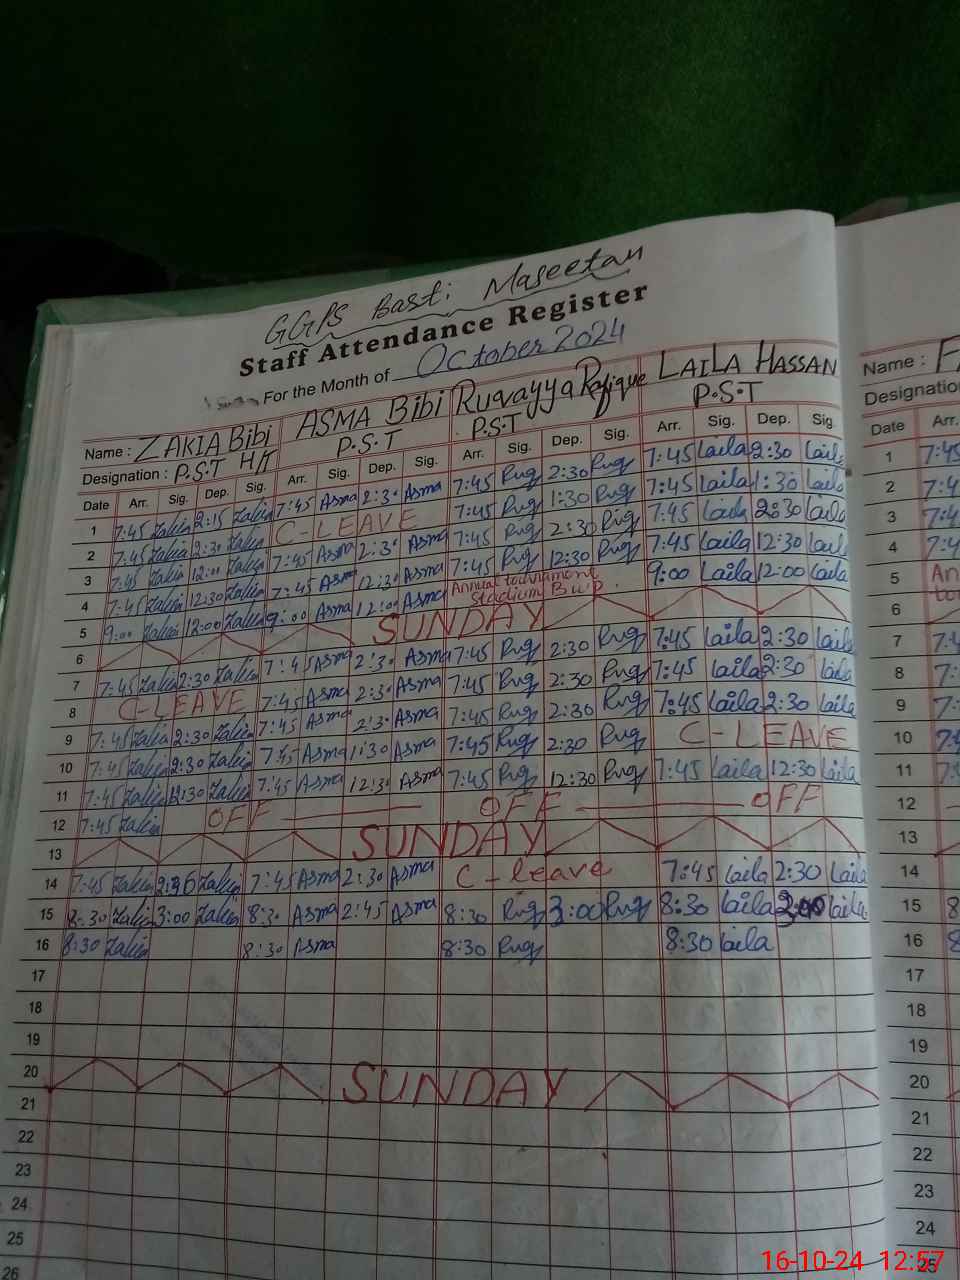 GGPS Basti Maseetan
Staff Attendance Register
For the Month of October 2024
Name : ZAKIA Bibi ASMA Bibi Ruqayya Rafique LAILA HASSAN Name :
Designation : P.S.T H/T P.S.T P.S.T P.S.T Designation
Date Arr. Sig. Dep. Sig. Arr. Sig. Dep. Sig. Arr. Sig. Dep. Sig. Arr. Sig. Dep. Sig. Date Arr.
1 7:45 Zakia 2:15 Zakia 7:45 Asma 2:30 Asma 7:45 Ruq 2:30 Ruq 7:45 Laila 2:30 Laila 1 7:45
2 7:45 Zakia 2:30 Zakia C-LEAVE 7:45 Ruq 1:30 Ruq 7:45 Laila 1:30 Laila 2
3 7:45 Zakia 12:00 Zakia 7:45 Asma 2:30 Asma 7:45 Ruq 2:30 Ruq 7:45 Laila 2:30 Laila 3
4 7:45 Zakia 12:30 Zakia 7:45 Asma 12:30 Asma 7:45 Ruq 12:30 Ruq 7:45 Laila 12:30 Laila 4
5 9:00 Zakia 12:00 Zakia 9:00 Asma 12:00 Asma Annual tournament Stadium Bwp. 9:00 Laila 12:00 Laila 5
6 SUNDAY 6
7 7:45 Zakia 2:30 Zakia 7:45 Asma 2:30 Asma 7:45 Ruq 2:30 Ruq 7:45 Laila 2:30 Laila 7
8 C-LEAVE 7:45 Asma 2:30 Asma 7:45 Ruq 2:30 Ruq 7:45 Laila 2:30 Laila 8
9 7:45 Zakia 2:30 Zakia 7:45 Asma 2:30 Asma 7:45 Ruq 2:30 Ruq 7:45 Laila 2:30 Laila 9
10 7:45 Zakia 2:30 Zakia 7:45 Asma 1:30 Asma 7:45 Ruq 2:30 Ruq C-LEAVE 10
11 7:45 Zakia 12:30 Zakia 7:45 Asma 12:30 Asma 7:45 Ruq 12:30 Ruq 7:45 Laila 12:30 Laila 11
12 7:45 Zakia OFF OFF OFF 12
13 SUNDAY 13
14 7:45 Zakia Zakia 7:45 Asma 2:30 Asma C-leave 7:45 Laila 2:30 Laila 14
15 8:30 Zakia 3:00 Zakia 8:30 Asma 2:45 Asma 8:30 Ruq 3:00 Ruq 8:30 Laila Laila 15
16 8:30 Zakia 8:30 Asma 8:30 Ruq 8:30 Laila 16
17 17
18 18
19 19
20 SUNDAY 20
21 21
22 22
23 23
24 24
25 25
26
16-10-24 12:57